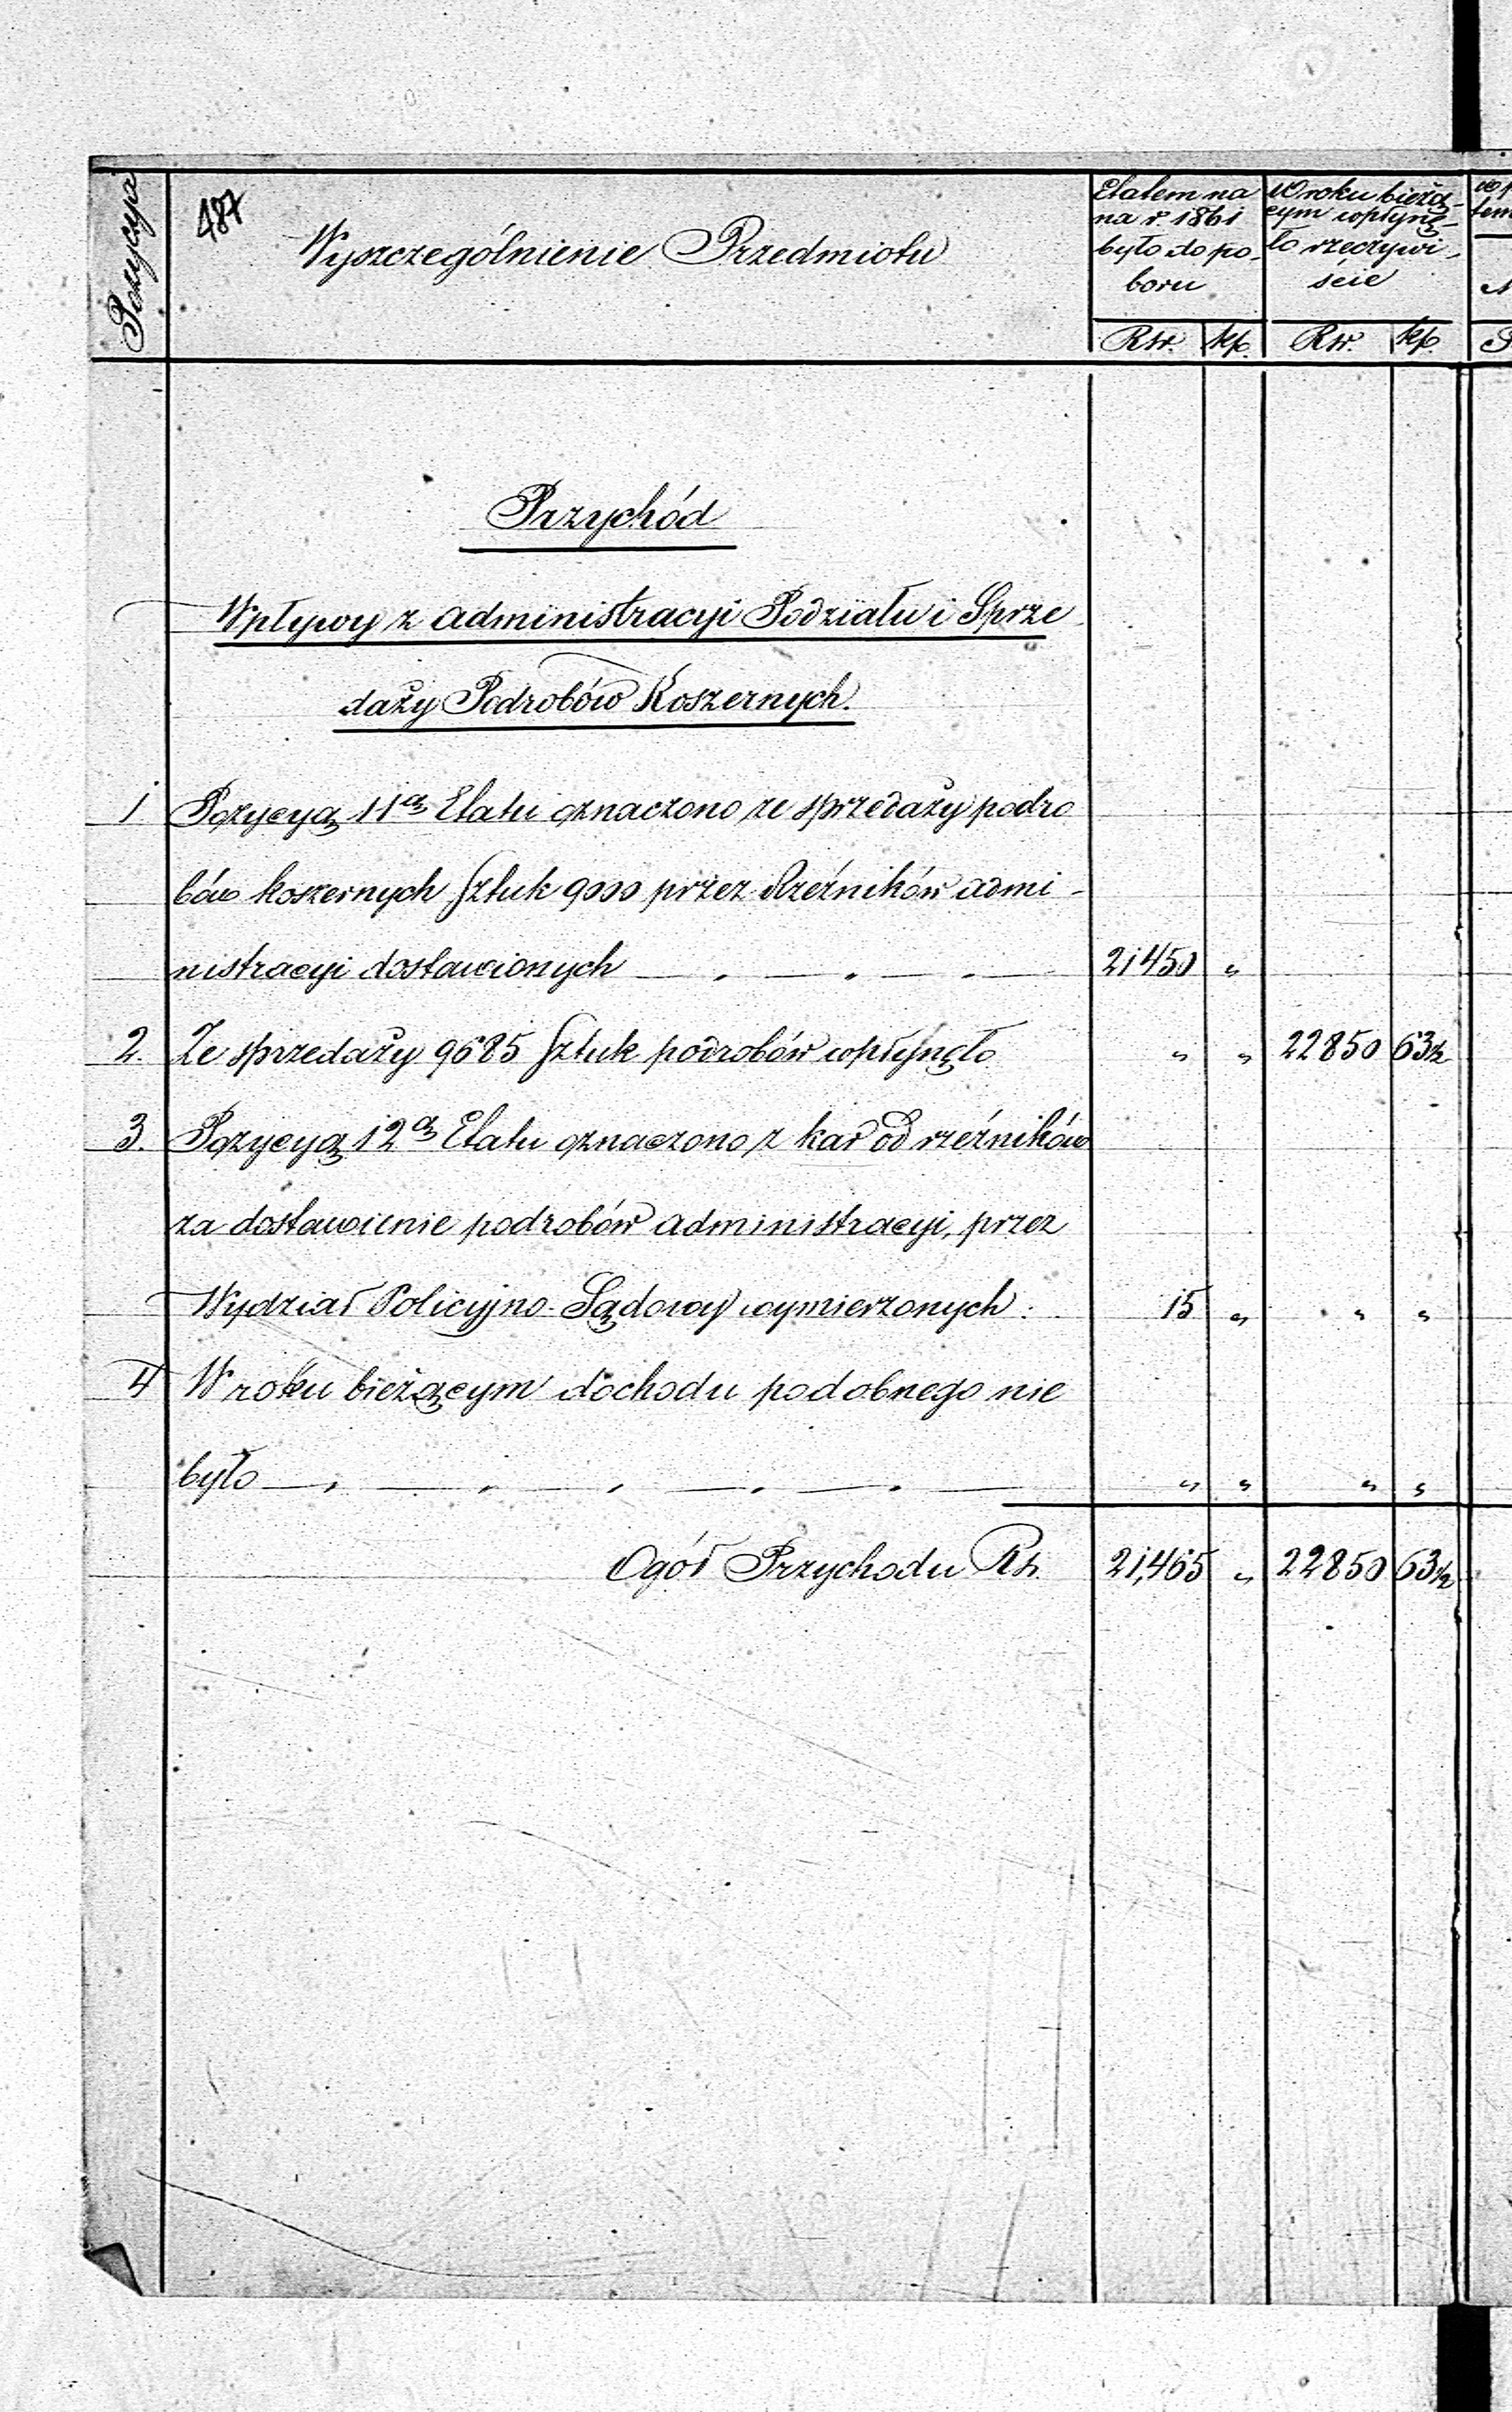 Pozycyja
487
Wyszczególnienie Przedmiotu
Etatem na
na r 1861
było do po-
boru
W roku bieżą-
cym wpłynę-
ło rzeczywi-
scie
Rsr. kp. Rsr. kp.
Przychód
Wpływy z administracyi Podziału i Sprze
daży Podrobów Koszernych.
1 Pozycyą 11ą Etatu oznaczono ze sprzedaży podro
bów koszernych sztuk 9000 przez Rzeźników admi-
nistracyi dostawionych 21450 „
2. Ze sprzedaży 9685 sztuk podrobów wpłynęło „ „ 22850 63½
3. Pozycyą 12ą Etatu oznaczono z kar od rzeźników
za dostawienie podrobów administracyi, przez
Wydział Policyjno-Sądowy wymierzonych: 15 „ „ „
4 W roku bieżącym dochodu podobnego nie
było „ „ „ „
Ogół Przychodu Rs. 21,465 „ 22850 63½